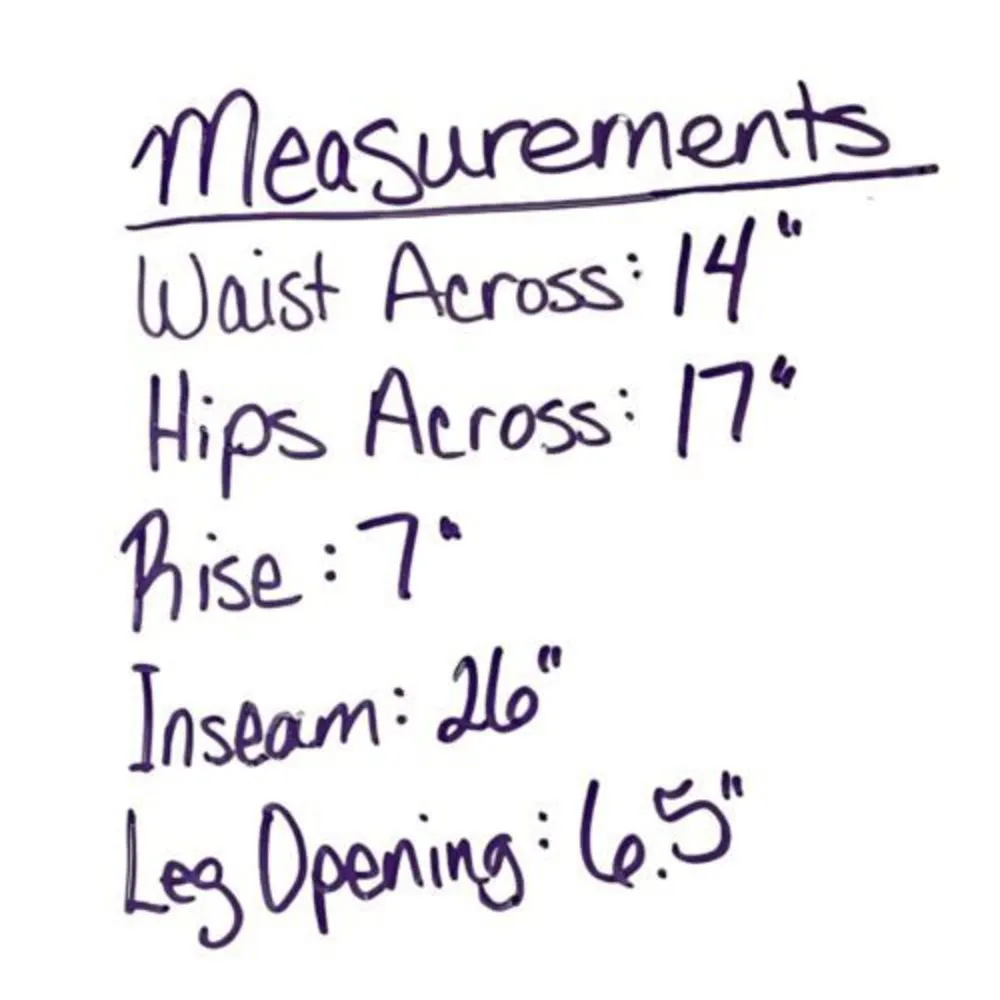 Measurements
Waist Across: 14"
Hips Across: 17"
Rise: 7"
Inseam: 26"
Leg Opening: 6.5"